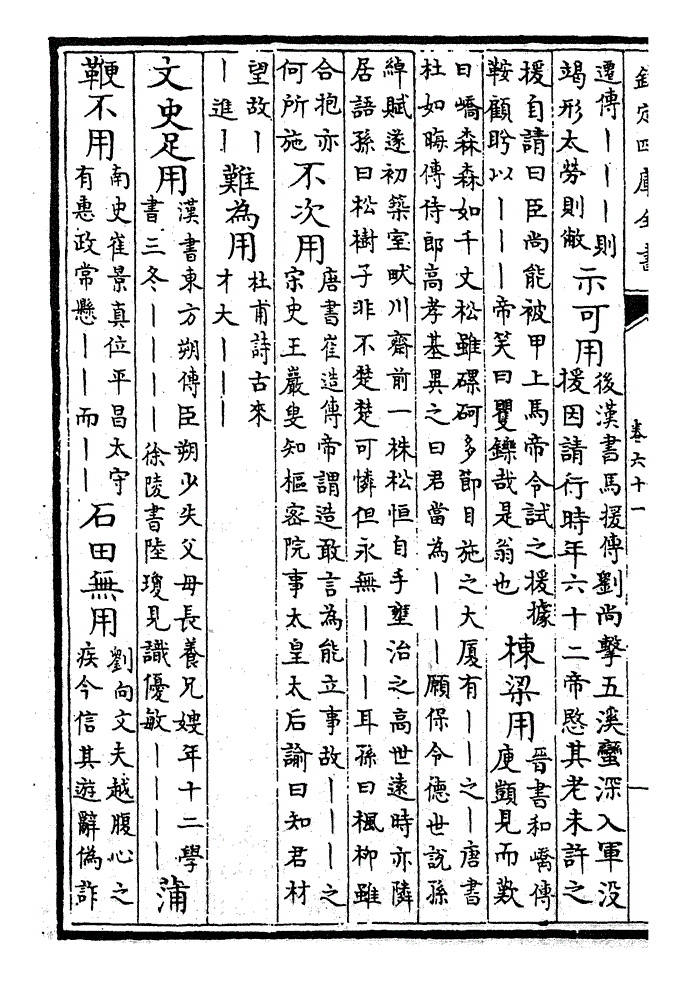 欽定四庫全書
卷六十一
遷傳｜｜｜則
竭形太勞則敝
示可用
後漢書馬援傳劉尚擊五溪蠻深入軍没
援因請行時年六十二帝愍其老未許之
援自請曰臣尚能被甲上馬帝令試之援據
鞍顧眄以｜｜｜帝笑曰矍鑠哉是翁也
棟梁用
晉書和嶠傳
庾顗見而歎
曰嶠森森如千丈松雖磥砢多節目施之大厦有｜｜之｜唐書
杜如晦傳侍郎高孝基異之曰君當為｜｜｜願保令德世說孫
綽賦遂初築室畎川齋前一株松恒自手壅治之高世遠時亦隣
居語孫曰松樹子非不楚楚可憐但永無｜｜｜耳孫曰楓柳雖
合抱亦
何所施
不次用
唐書崔造傳帝謂造敢言為能立事故｜｜｜之
宋史王巖叟知樞密院事太皇太后諭曰知君材
望故｜
｜進｜
難為用
杜甫詩古來
才大｜｜｜
文史足用
漢書東方朔傳臣朔少失父母長養兄嫂年十二學
書三冬｜｜｜｜徐陵書陸瓊見識優敏｜｜｜｜
蒲
鞭不用
南史崔景真位平昌太守
有惠政常懸｜｜而｜｜
石田無用
劉向文夫越腹心之
疾今信其遊辭偽詐